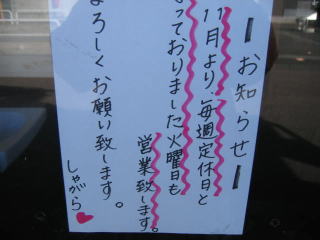 ーお知らせー
11月より、毎週定休日と
なっておりました火曜日も
営業致します。
よろしくお願い致します。
しゃがら